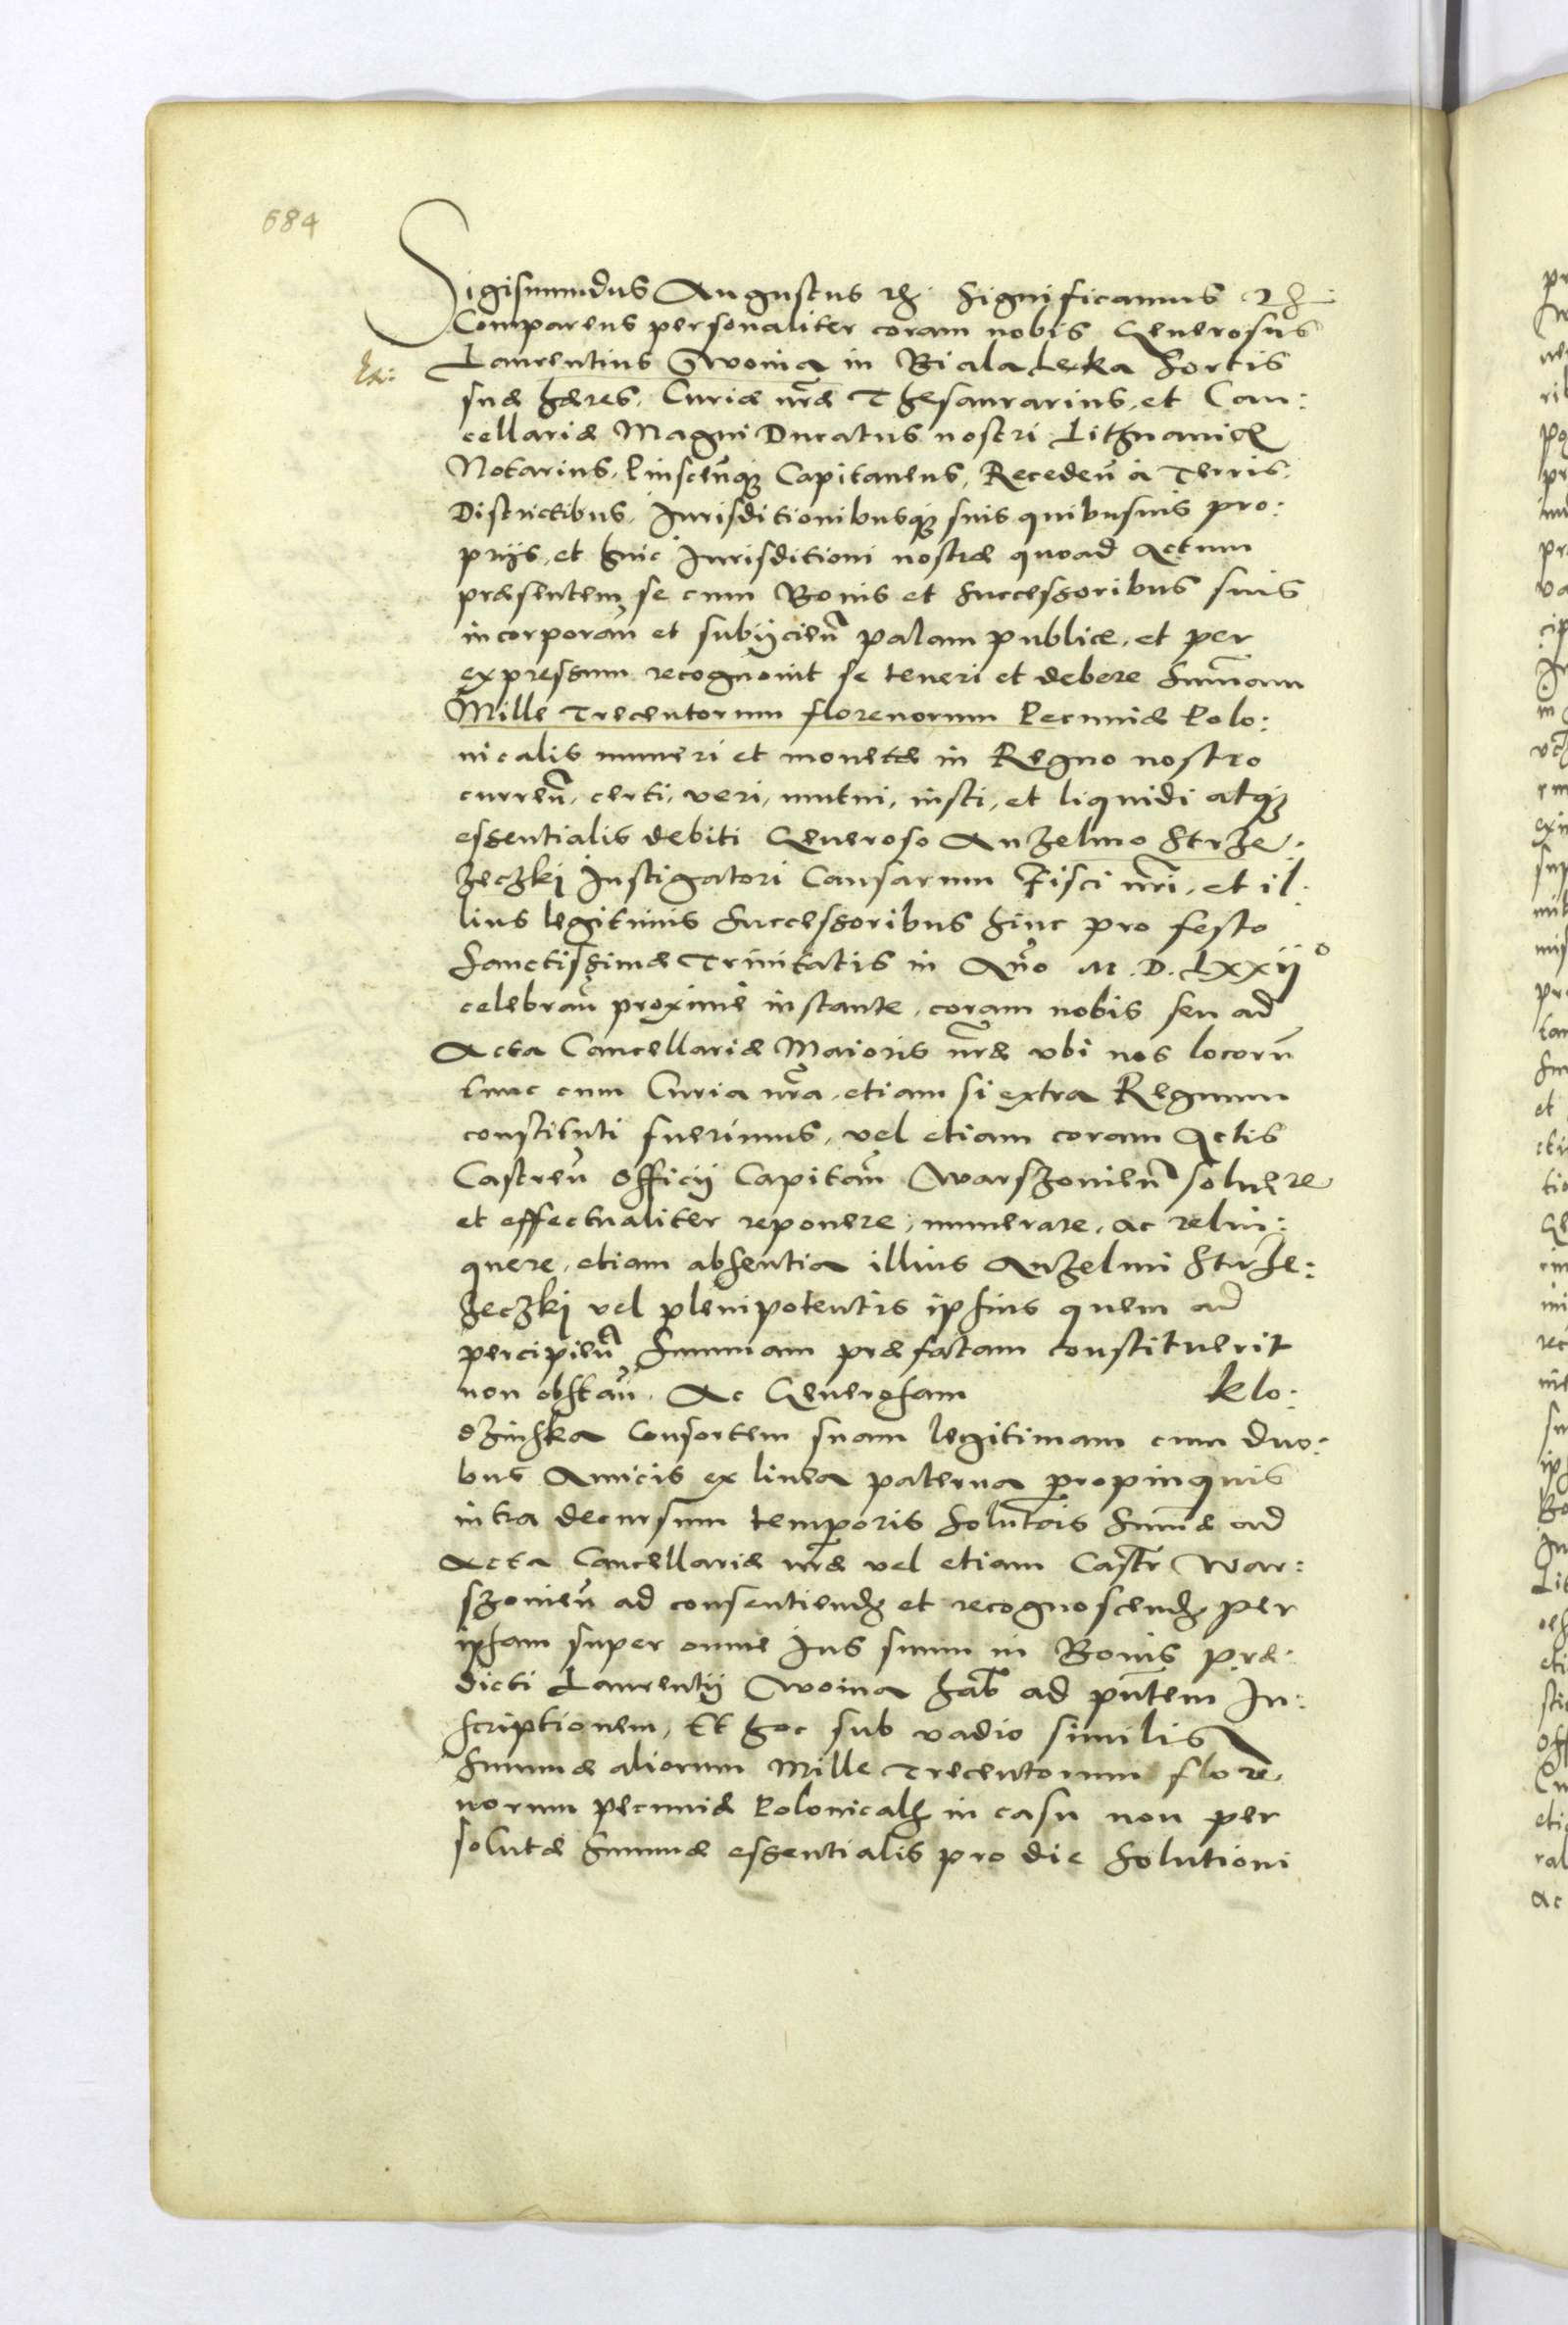 684
Sigismundus Augustus etc. Significamus etc.
Comparens personaliter coram nobis Generosus
Laurentius Woina in Biala Leka Sortis
suæ hæres, Curiæ nr̃æ Thesaurarius, et Can:
cellariæ Magni Ducatus nostri Lithuaniæ
Notarius, Pinscen̄q₃ Capitaneus, Receden̄ à Terris
Districtibus, Jurisditionibusq₃ suis quibusuis pro:
prijs, et huic Jurisditioni nostræ quoad Actum
præsentem se cum Bonis et Successoribus suis
incorporan̄ et subijcien̄ palam publice, et per
expressum recognouit se teneri et debere Sum̄am
Mille Trecentorum florenorum Pecuniæ Polo:
nicalis numeri et monetæ in Regno nostro
curren̄, certi, veri, mutui, iusti, et liquidi atq₃
essentialis debiti Generoso Anzelmo Strze:
zeczkj Instigatori Causarum Fisci nr̃i, et il:
lius legitimis Successoribus hinc pro festo
Sanctissimæ Trinitatis in An̄o M. D. Lxxij°
celebran̄ proximè instante, coram nobis seu ad
Acta Cancellariæ Maioris nr̃æ vbi nos locorū
tunc cum Curia nr̃a, etiam si extra Regnum
constituti fuerimus, vel etiam coram Actis
Castren̄ Officij Capitan̄ Warszouien̄ soluere
et effectualiter reponere, numerare, ac relin:
quere, etiam absentia illius Anzelmi Strze:
zeczkj vel plenipotentis ipsius quem ad
percipien̄ Summam præfatam constituerit
non obstan̄. Ac Generosam Klo:
dzinska Consortem suam legitimam cum duo:
bus Amicis ex linea paterna propinquis
intra decursum temporis solut̄ois Sum̄æ ad
Acta Cancellariæ nr̃æ vel etiam Castr̄ War:
szouien̄ ad consentiend₃ et recognoscend₃ per
ipsam super omne Jus suum in Bonis præ:
dicti Laurentij Woina hab̄ ad pn̄tem In:
scriptionem, Et hoc sub vadio similis
Summæ aliorum Mille Trecentorum flore
norum pecuniæ Polonical₃ in casu non per
solutæ Summæ essentialis pro die Solutioni